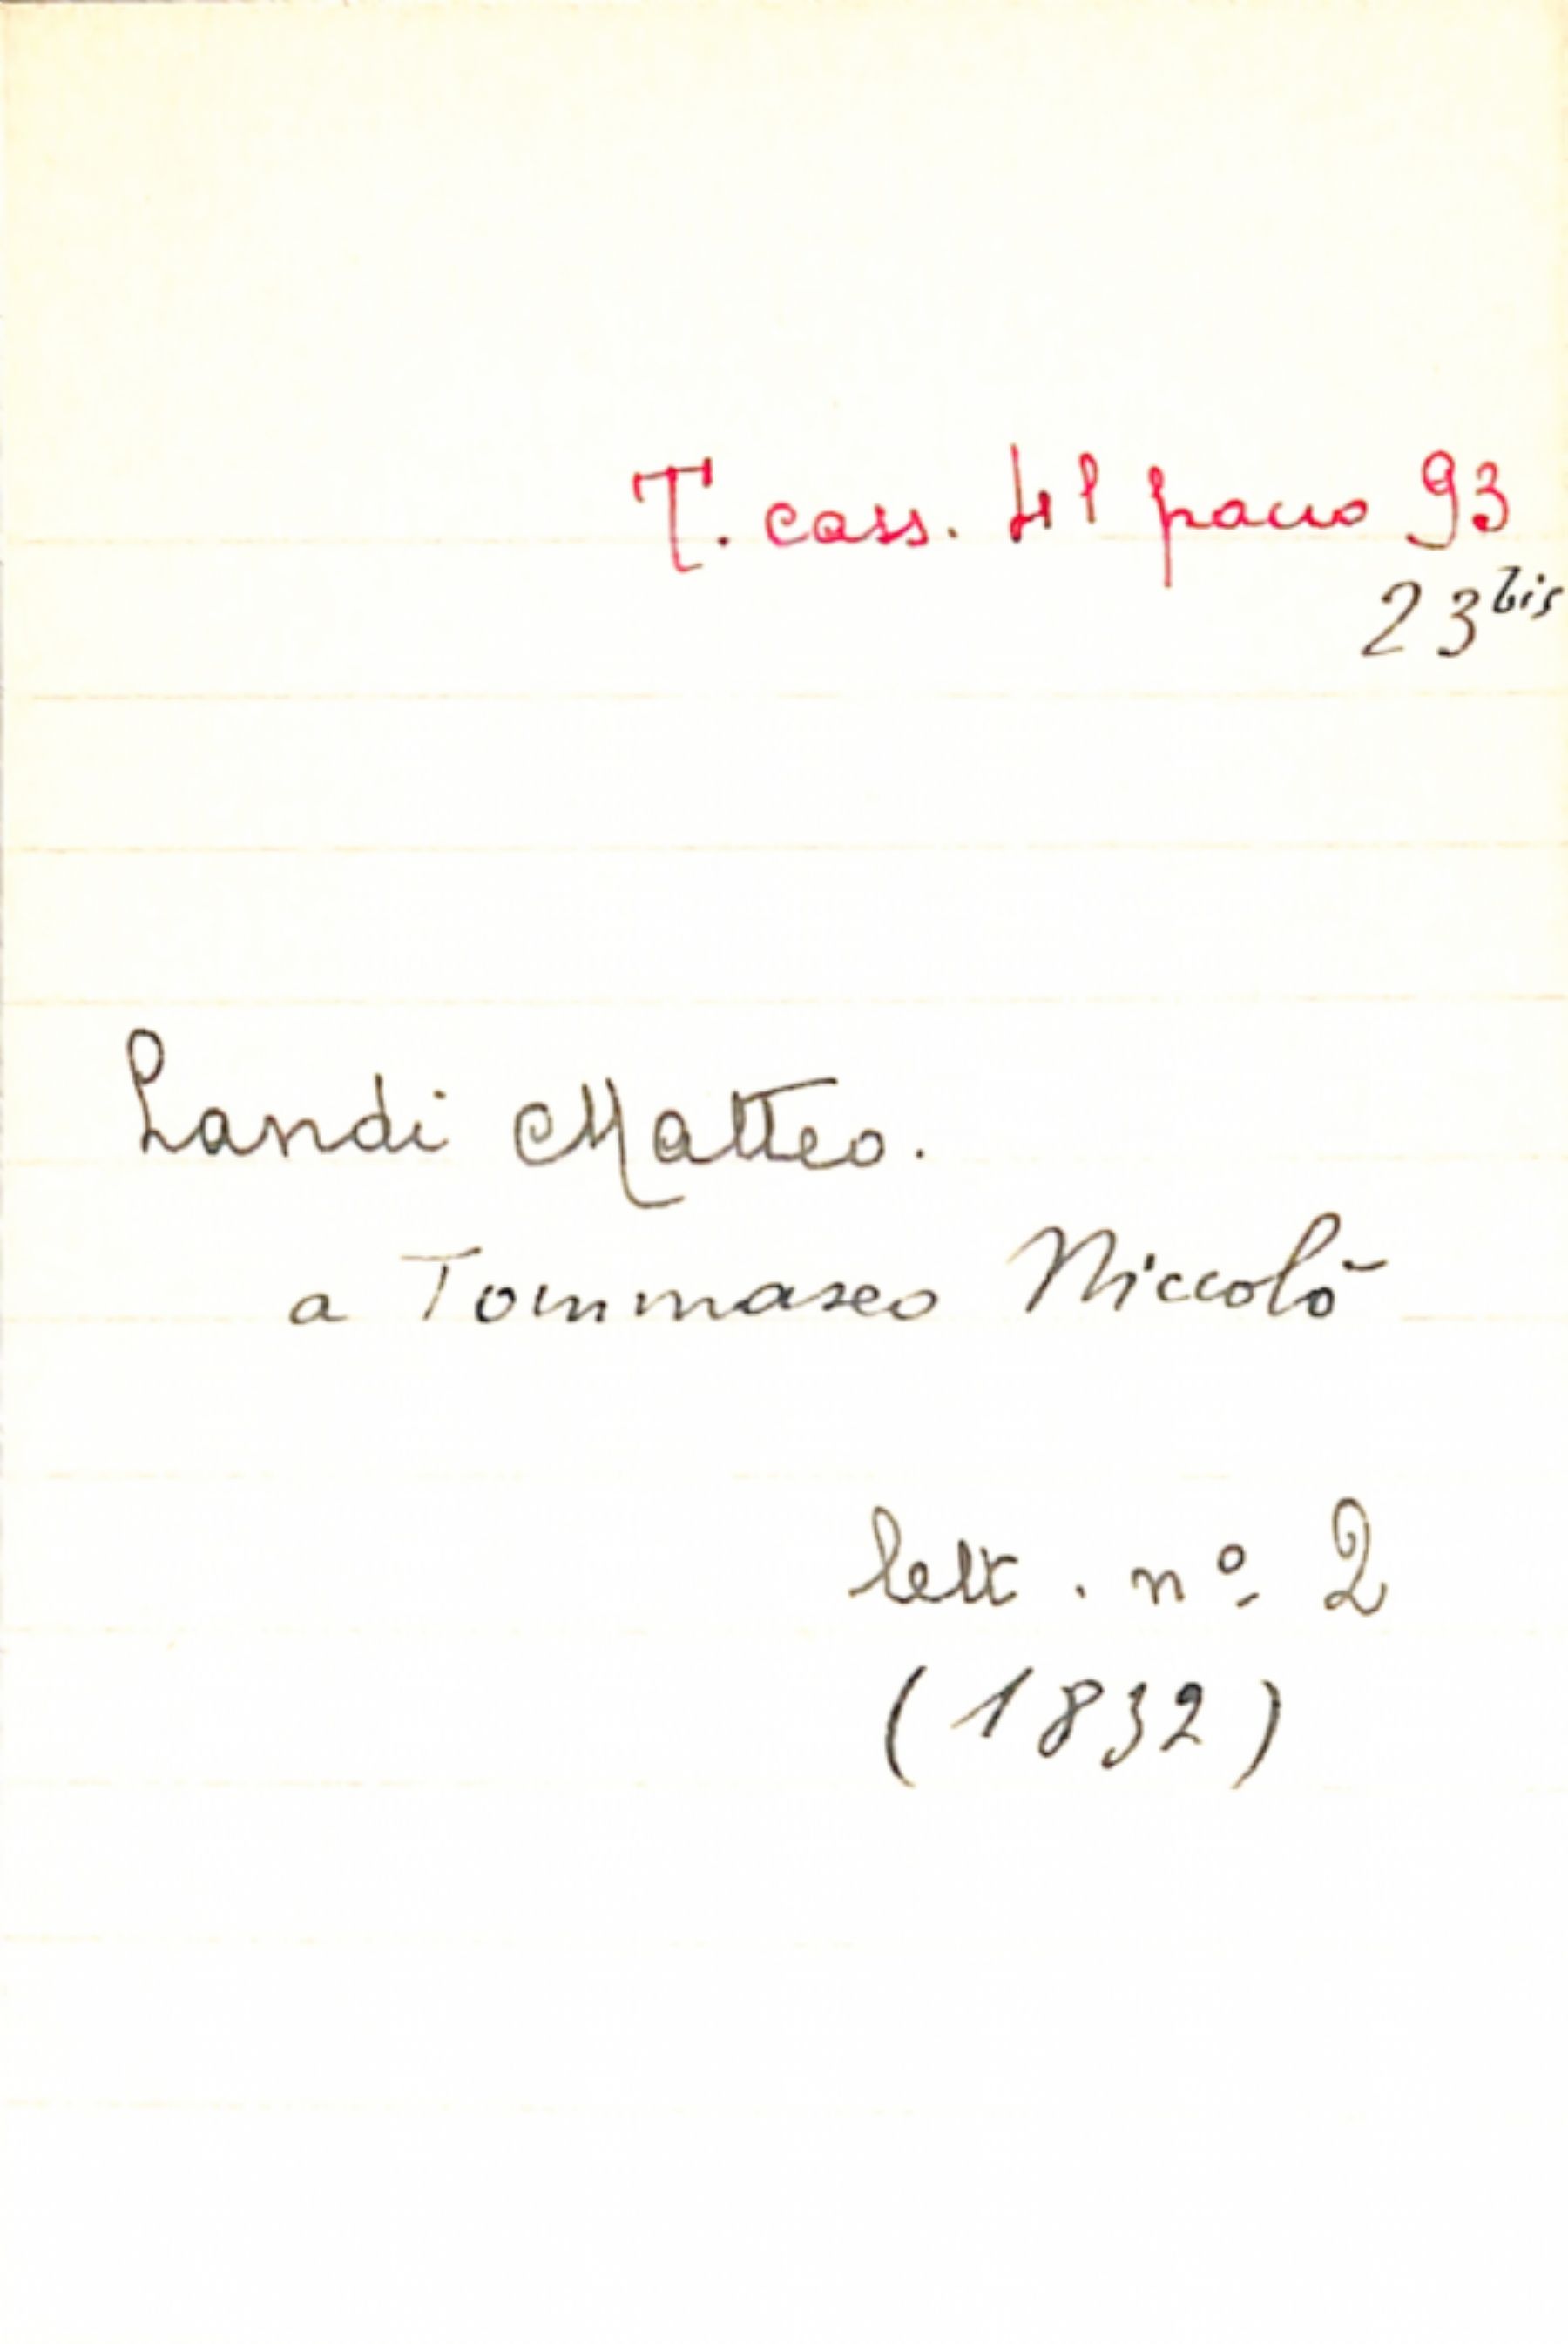 T. cass. 41 pacco 93
23 bis
Landi Matteo.
a Tommaseo Niccolò
lett. nº 2
(1832)